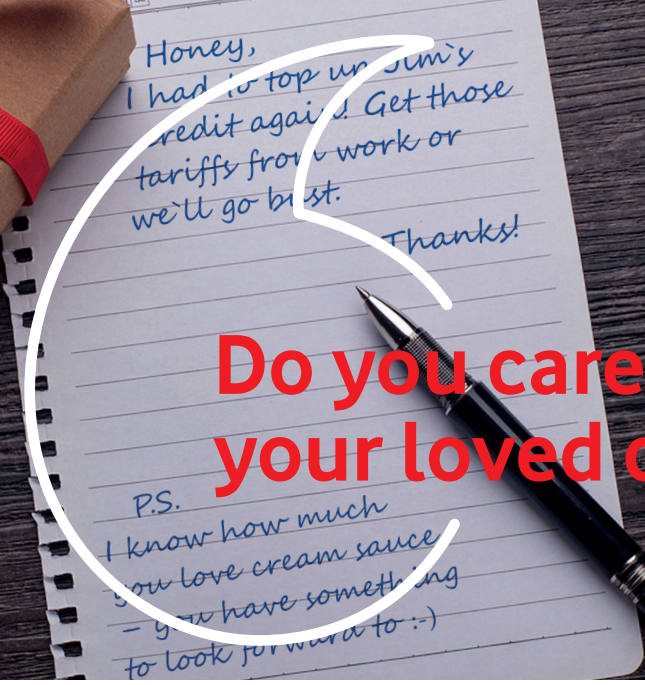 Honey,
I had to top up Jim`s
credit again! Get those
tariffs from work or
we`ll go bust.
Thanks!
Do you care
your loved o
P.S.
I know how much
you love cream sauce
– you have something
to look forward to :-)